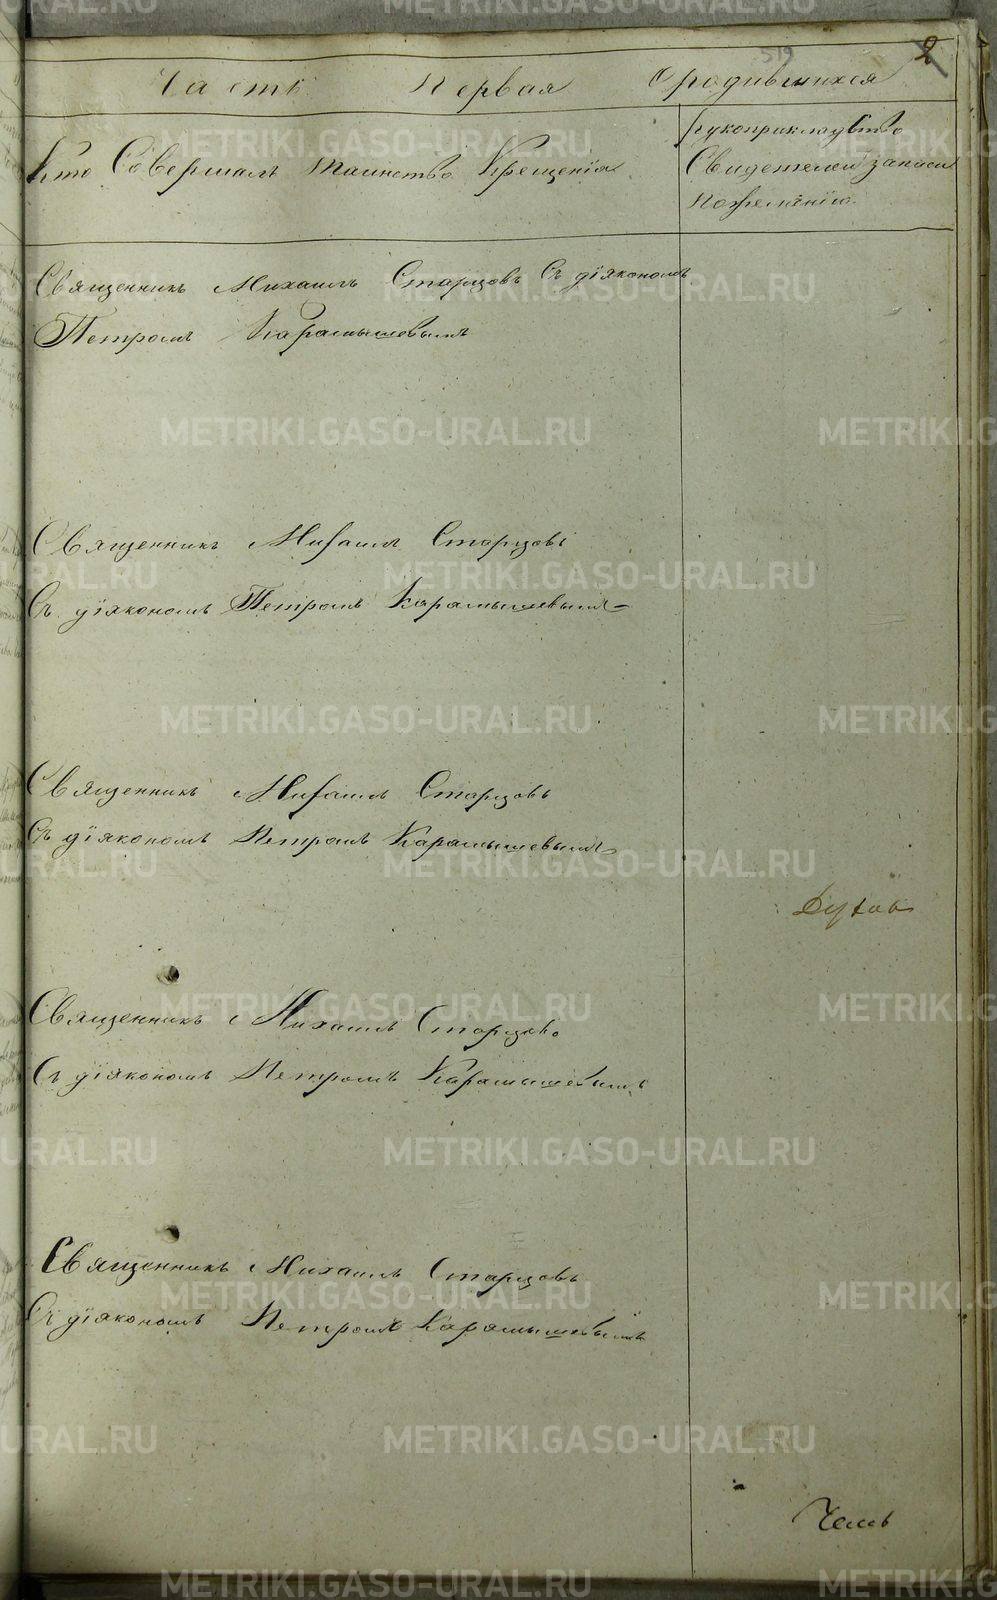 519 2
Часть Первая О родившихся
Кто Совершалъ таинство Крещенія
рукоприкладство
Свидетелей записи
по желанію.
Священникъ Михаилъ Старцовъ Съ діякономъ
Петромъ Карамышевымъ
Священникъ Михаилъ Старцовъ
Съ діякономъ Петромъ Карамышевымъ
Священникъ Михаилъ Старцовъ
Съ діякономъ Петромъ Карамышевымъ
Священникъ Михаилъ Старцовъ
Съ діякономъ Петромъ Карамышевымъ
Священникъ Михаилъ Старцовъ
Съ діякономъ Петромъ Карамышевымъ
METRIKI.GASO-URAL.RU